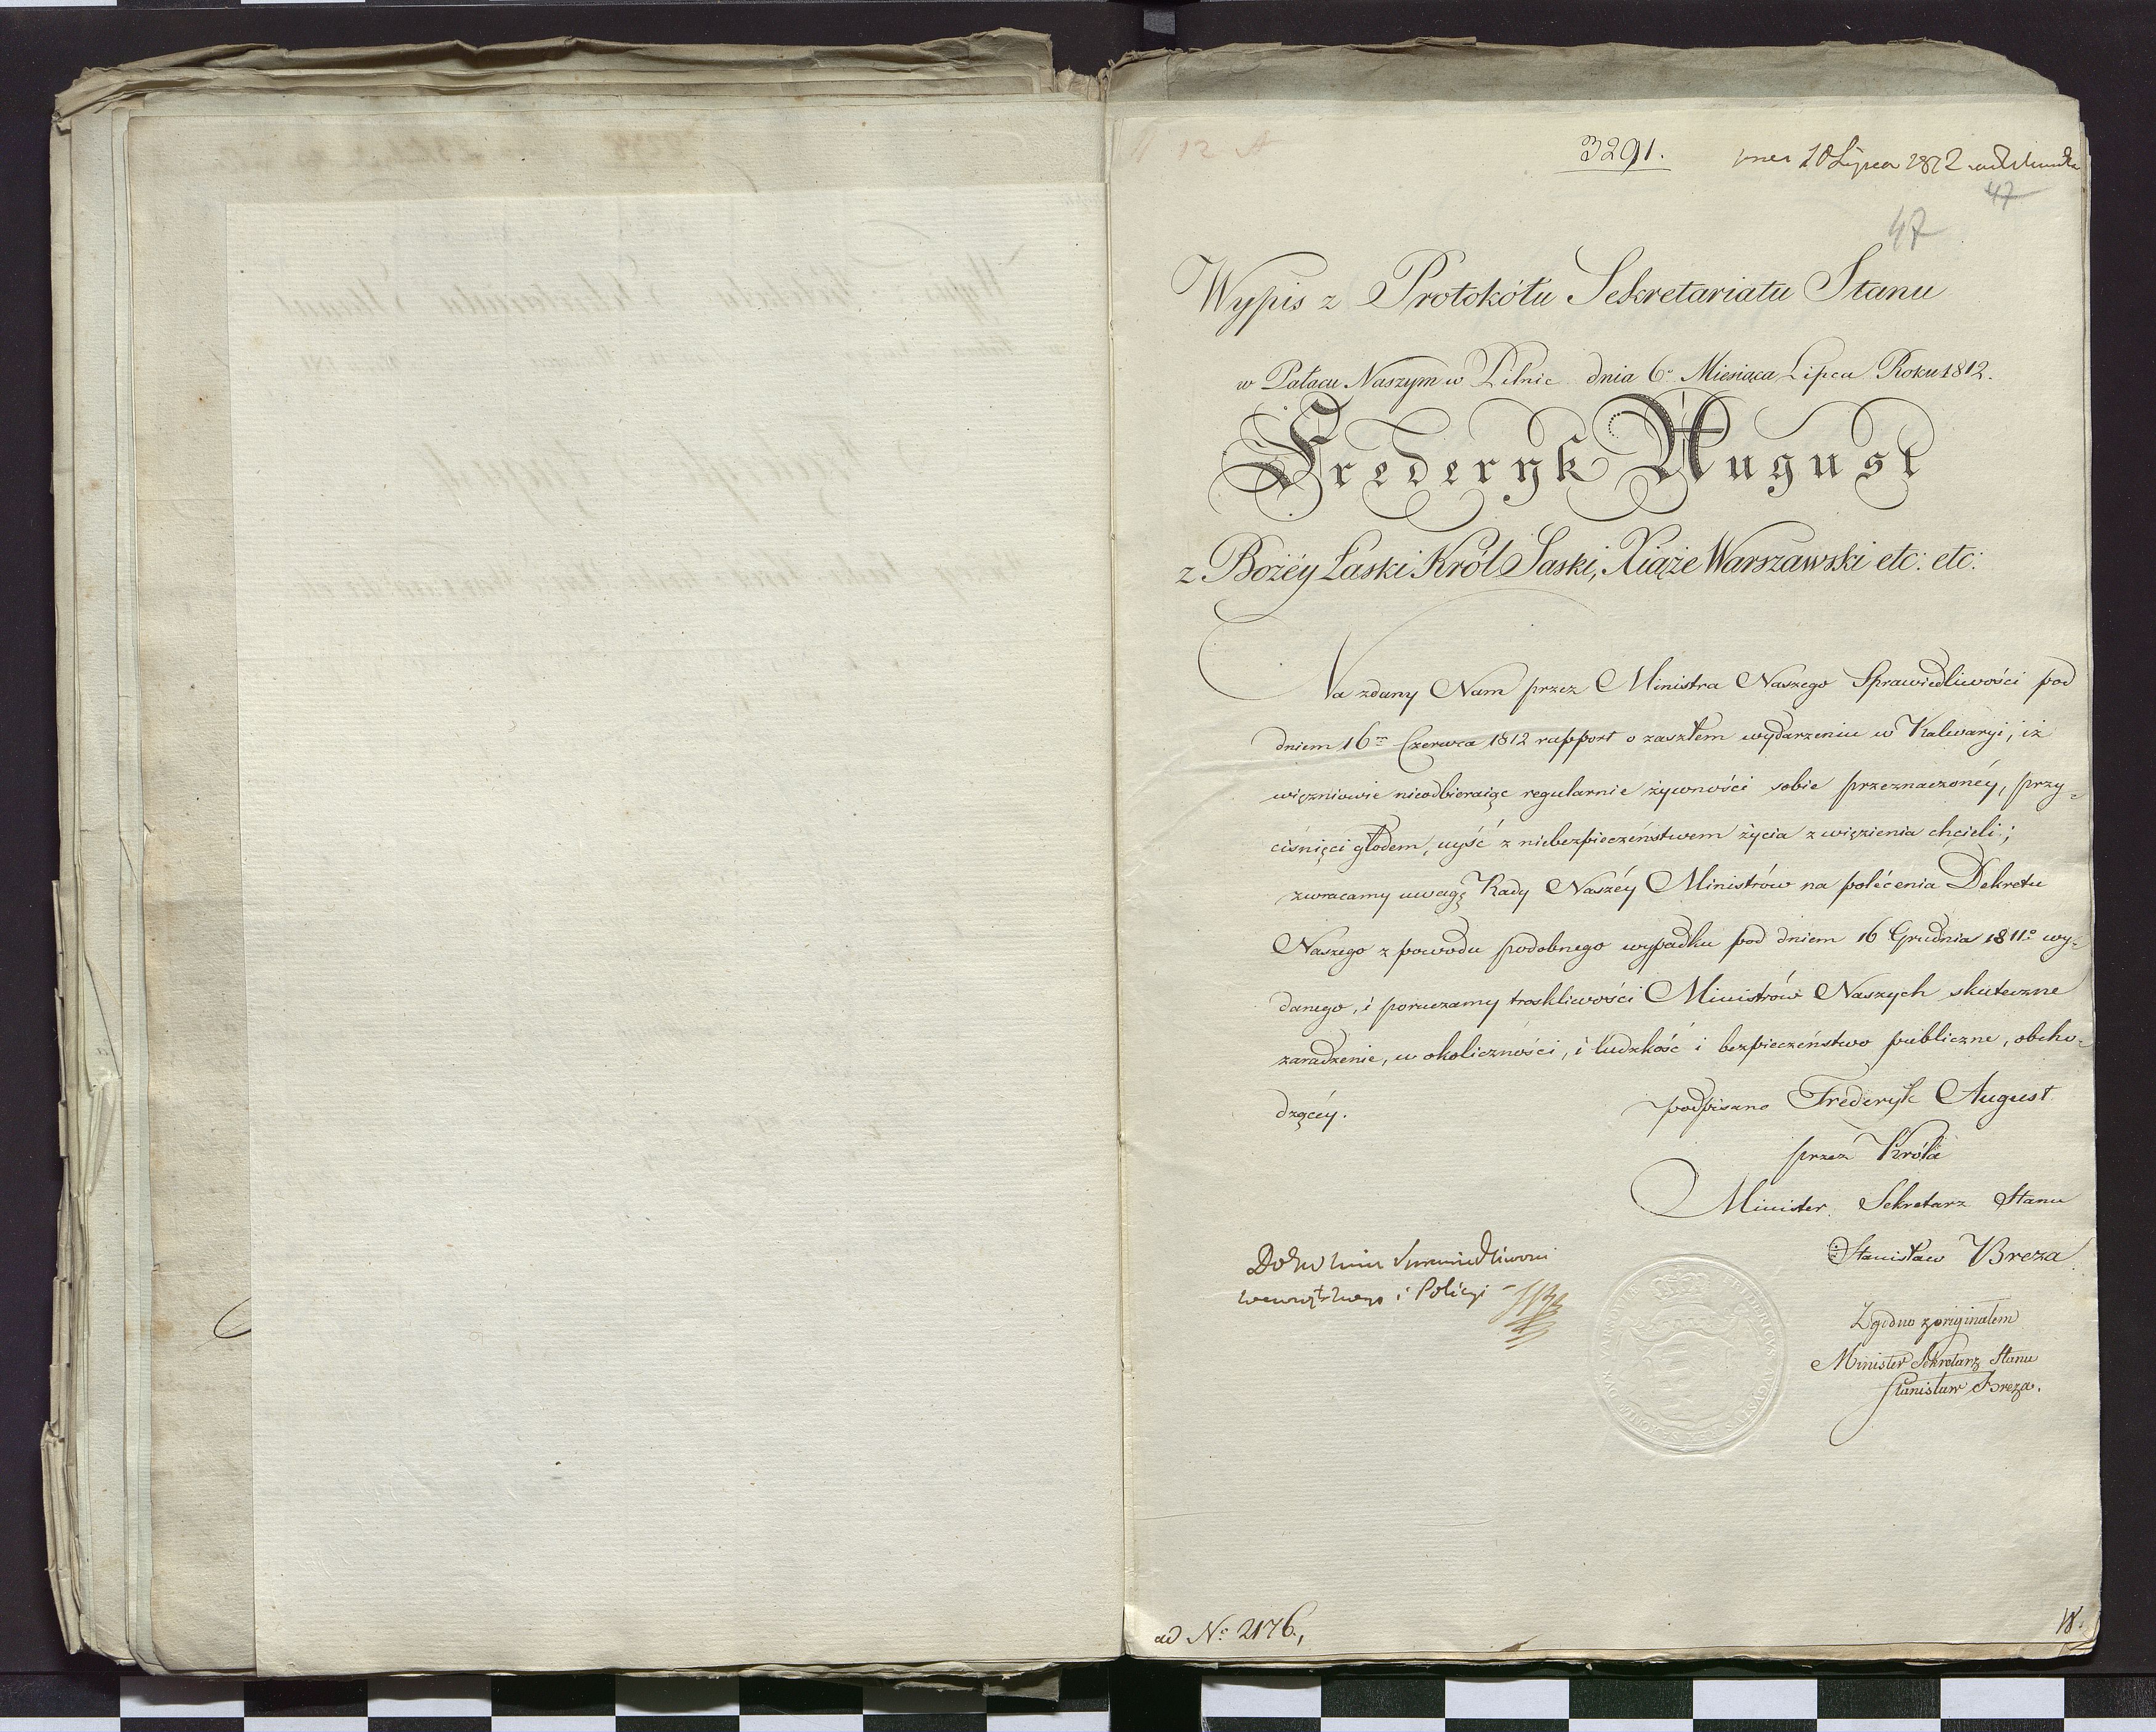 12 A
3291.
10 Lipca 1812
47
47
Wypis z Protokółu Sekretariatu Stanu
w Pałacu Naszym w Pilnic dnia 6º Miesiąca Lipca Roku 1812.
Frederyk August
z Bożéy Łaski Król Saski, Xiąże Warszawski etc: etc:
Na zdany Nam przez Ministra Naszego Sprawiedliwości pod
dniem 16m Czerwca 1812 rapport o zaszłem wydarzeniu w Kalwaryi, iż
więzniowie nieodbieraiąc regularnie żywności sobie przeznaczonéy, przy=
ciśnięci głodem, uyść z niebezpieczeństwem życia z więzienia chcieli;
zwracamy uwagę Rady Naszéy Ministrów na polécenia Dekretu
Naszego z powodu podobnego wypadku pod dniem 16 Grudnia 1811º wy=
danego, i poruczamy troskliwości Ministrów Naszych skuteczne
zaradzenie, w okoliczności, i ludzkość i bezpieczeństwo publiczne, obcho=
dzącéy.
podpisano Fréderyk August
przez Króla
Minister Sekretarz Stanu
Stanisław Breza
Sprawiedliwosci
wewnętrznego i Policyi
Zgodno z oryginałem
Minister Sekretarz Stanu
Stanisław Breza.
ad Nº 2176,